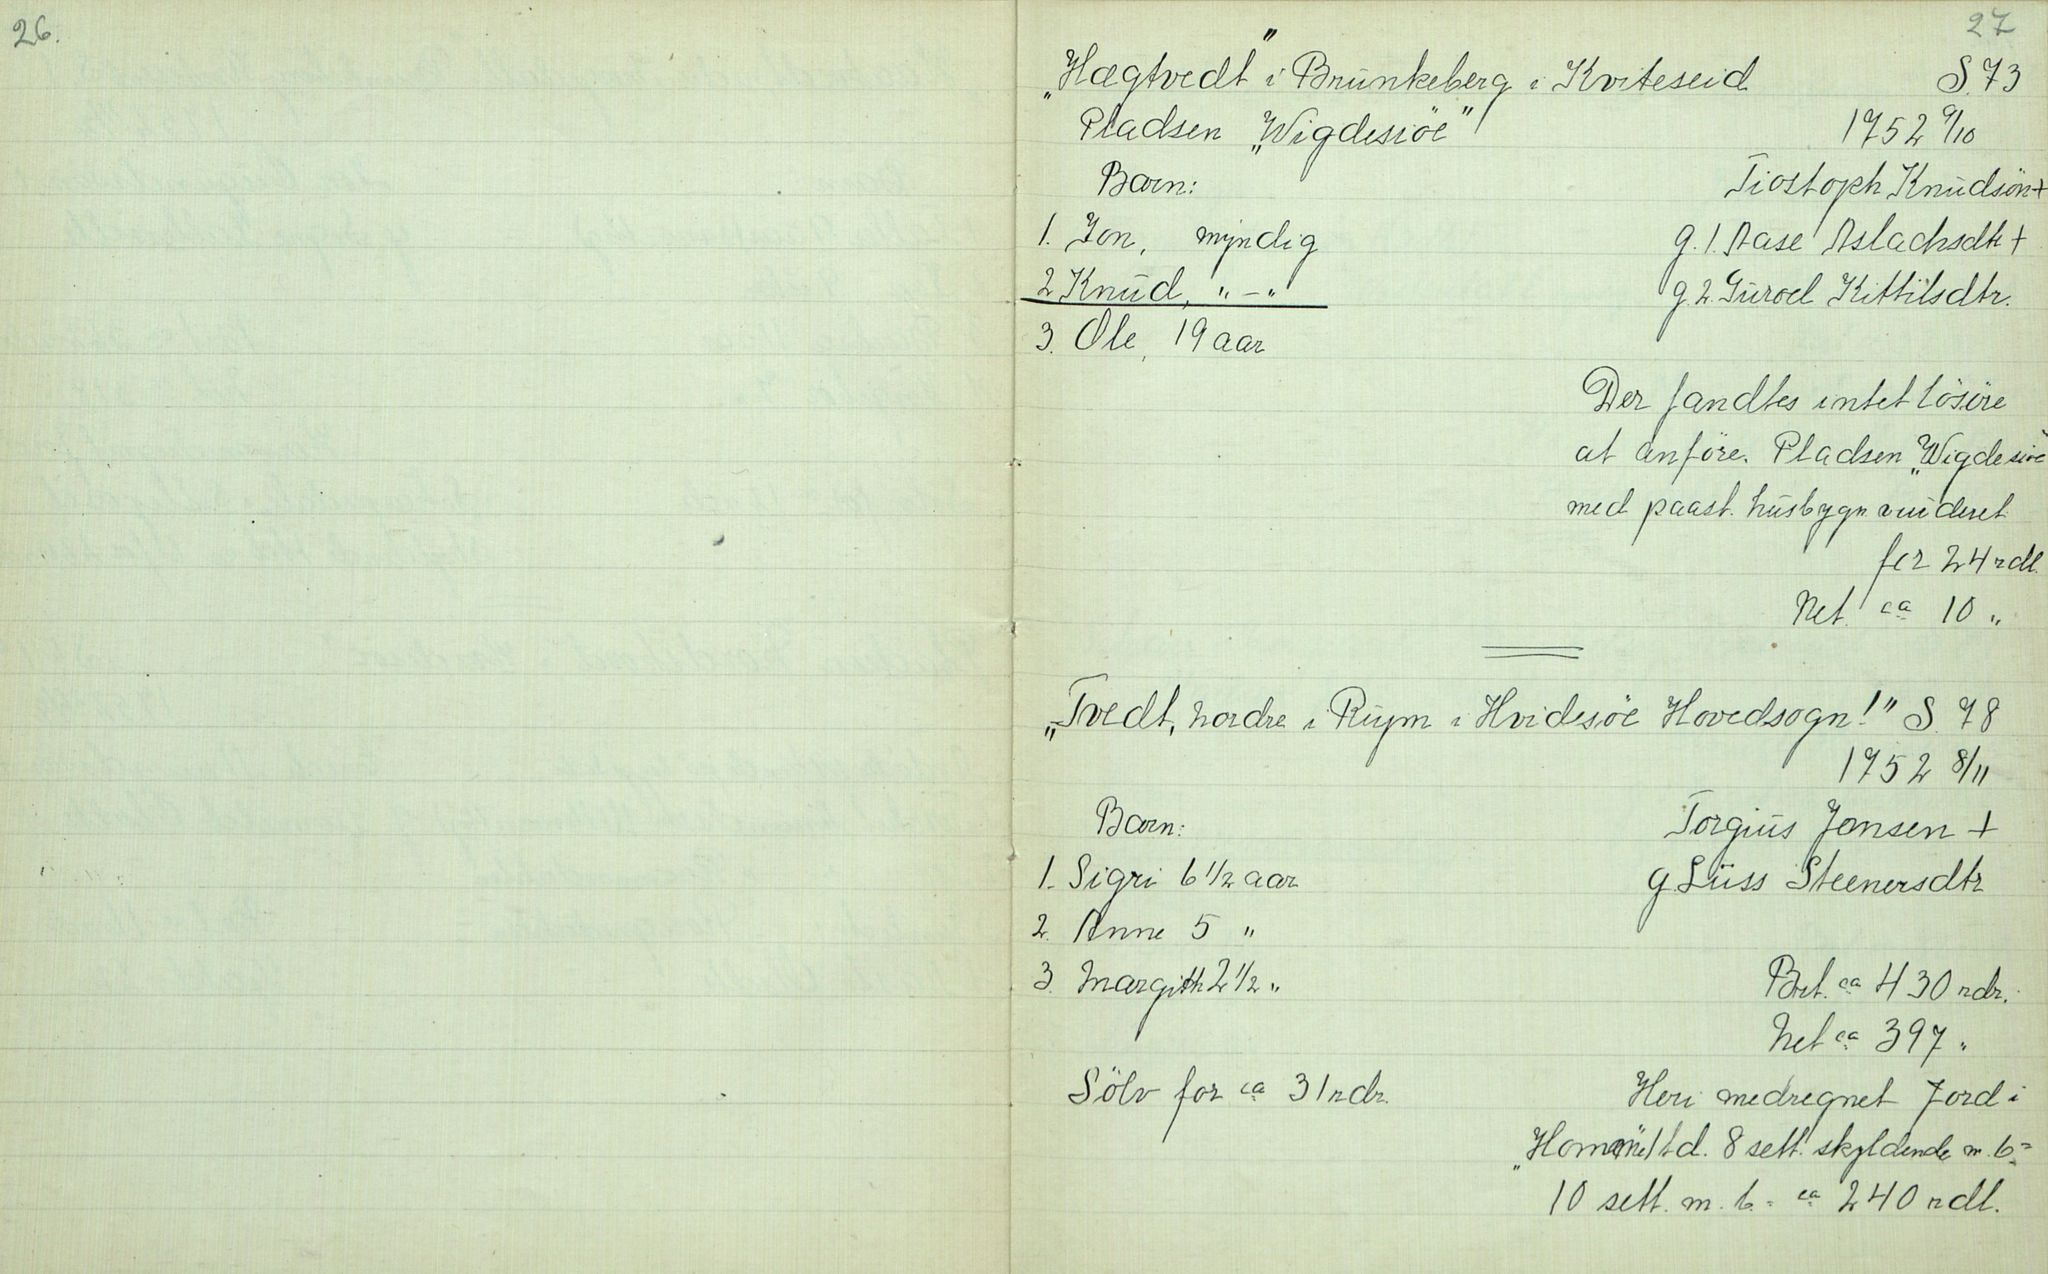 26.
27
"Hægtvedt" i Brunkeberg i Kviteseid S. 73
Pladsen "Wigdesiöe" 1752 9/10
Barn: Tiostoph Knudsön +
1. Jon, myndig g. 1. Aase Aslachsdtr +
2 Knud, " – " g. 2. Guroel Kittilsdtr.
3. Ole, 19 aar
Der fandtes intet lösöre
at anföre. Pladsen "Wigdesiöe"
med paast. husbygn vuideret
for 24 rdl.
Net. ca 10 "
"Tvedt, nordre i Rugm i Hvidesöe Hovedsogn!" S. 78
1752 8/11
Barn: Torgius Jonsen +
1. Sigri 6 1/2 aar g Lüss Steenersdtr
2. Anne 5 "
3. Margith 2 1/2 " Brt. ca 430 rdr.
Net ca 397 "
Sölv for ca 31 rdr. Heri medregnet Jord i
1 td. 8 sett. skyldende m. b =
10 sett. m. b. = ca 240 rdl.